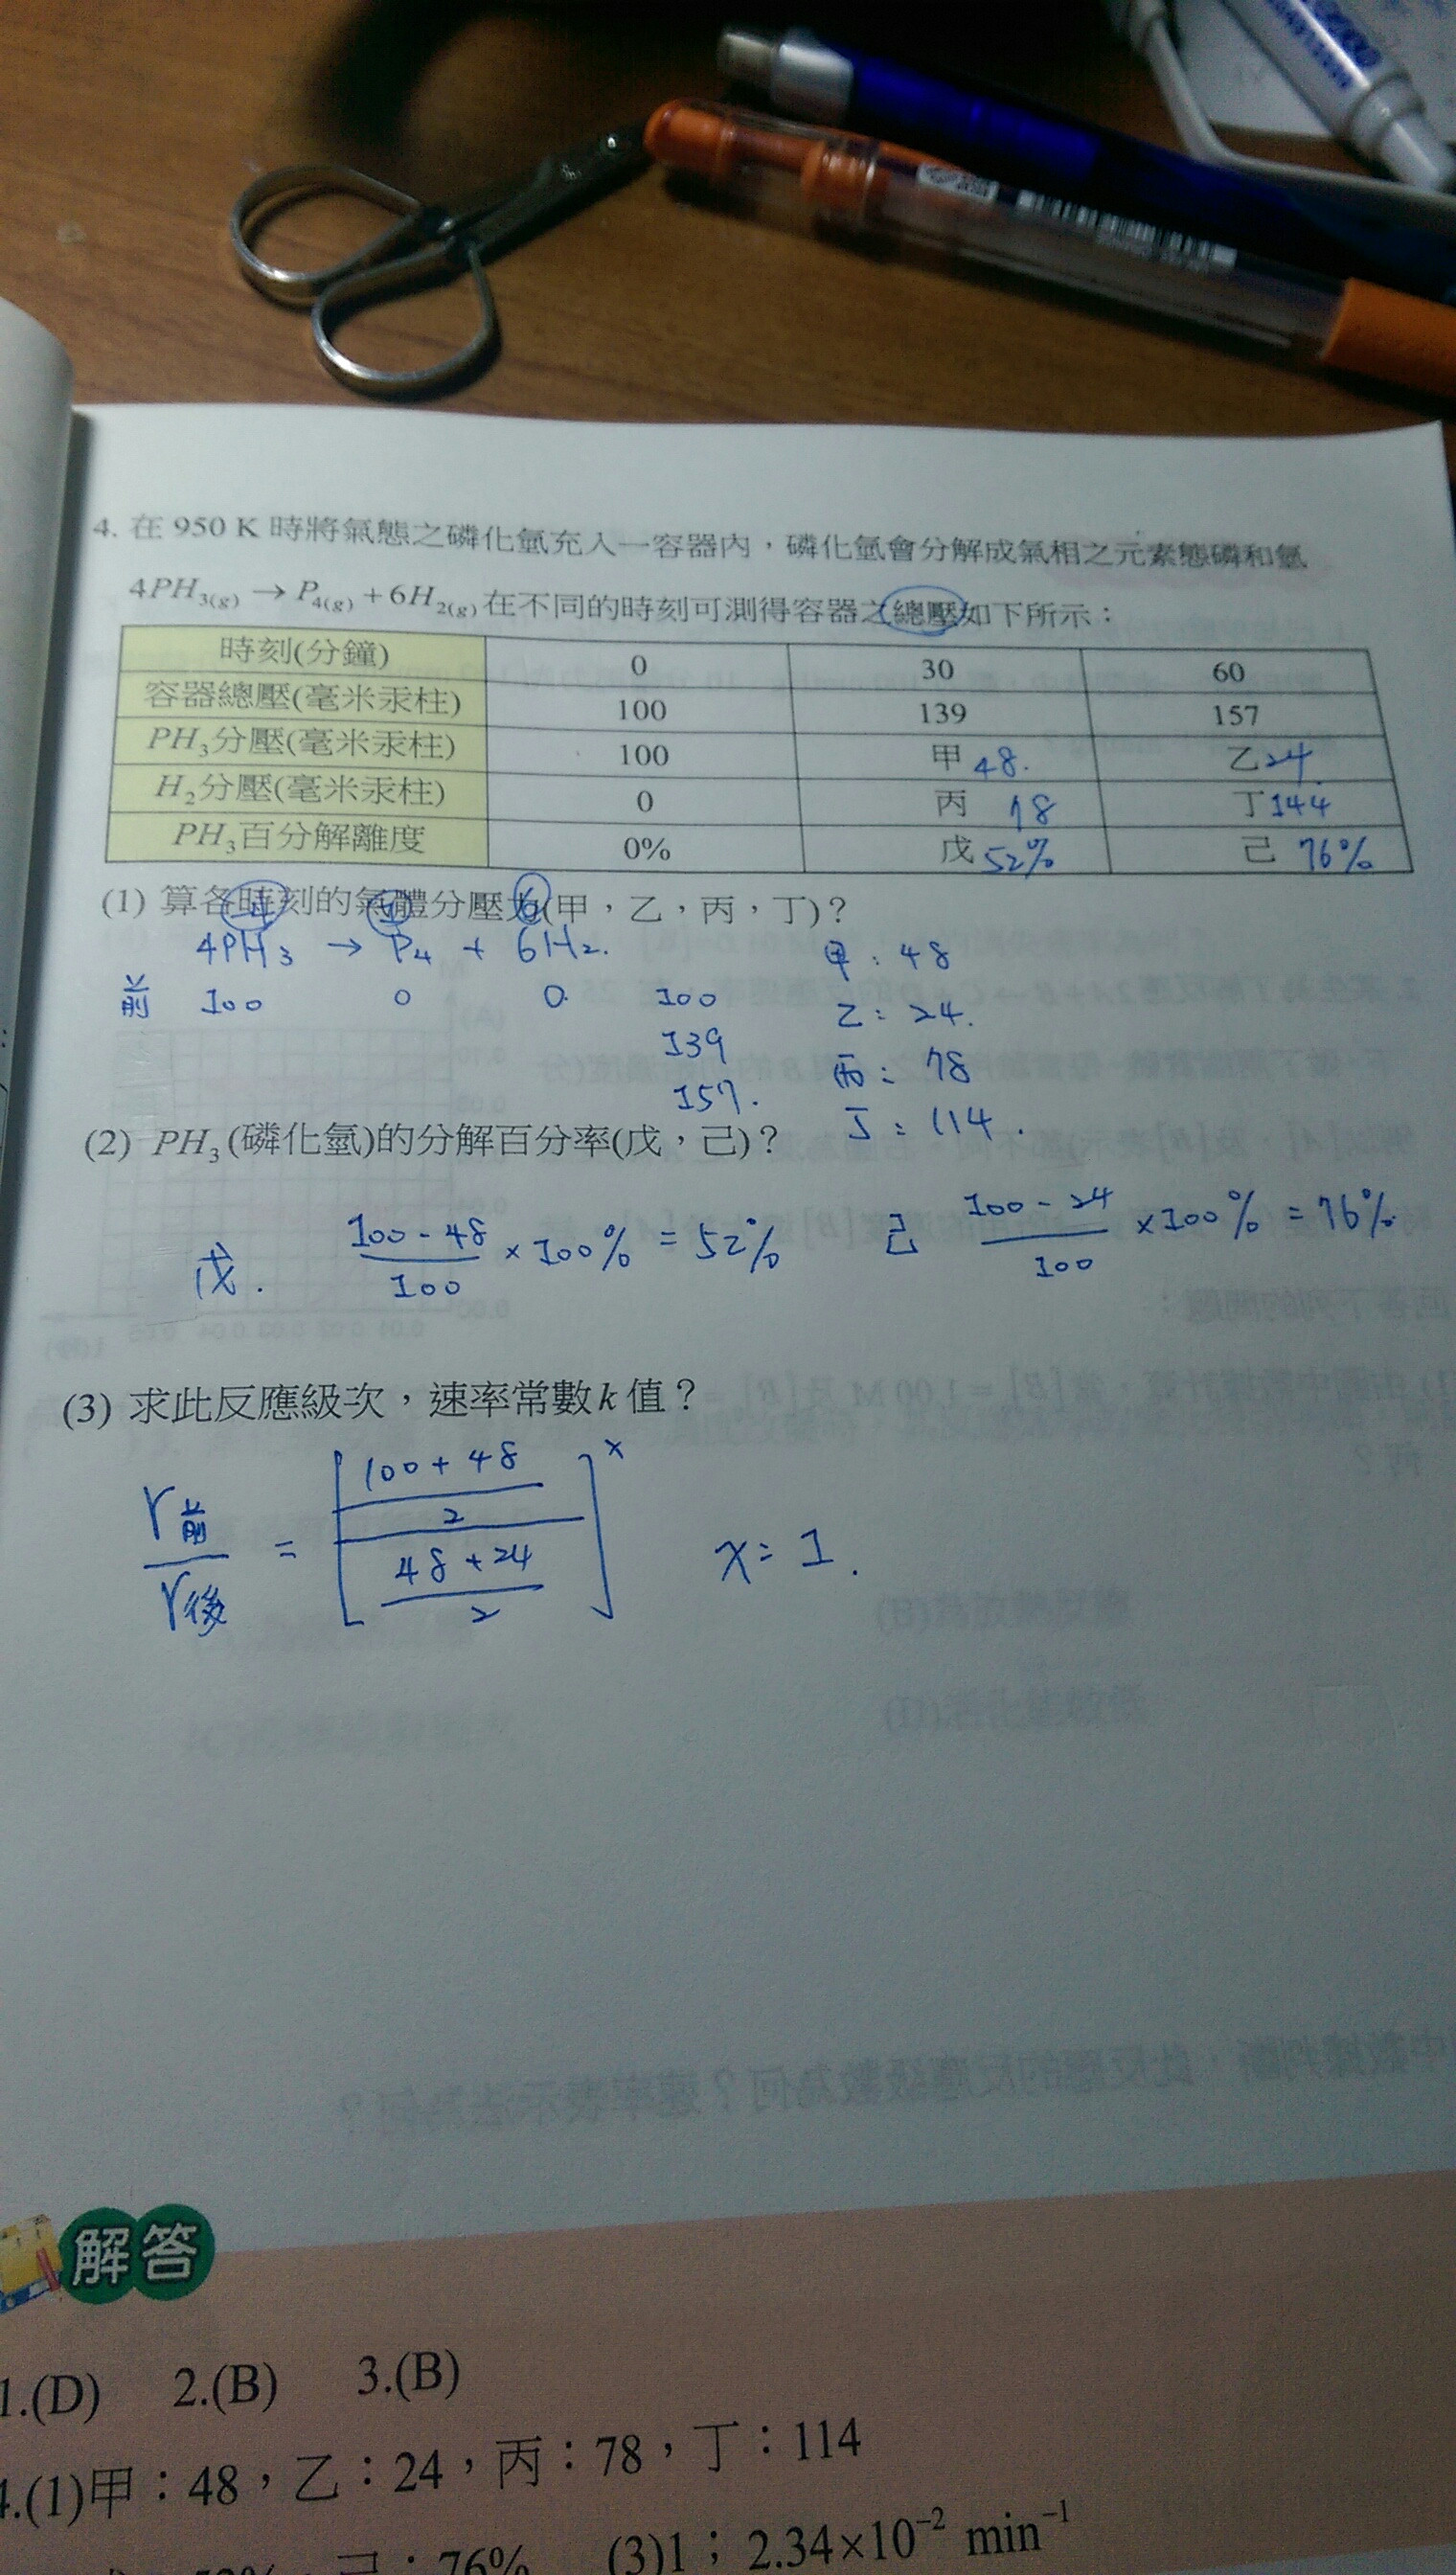 4. 在 950 K 時將氣態之磷化氫充入一容器內，磷化氫會分解成氣相之元素態磷和氫
4PH₃₍g₎ → P₄₍g₎ + 6H₂₍g₎ 在不同的時刻可測得容器之總壓如下所示：
時刻(分鐘) 0 30 60
容器總壓(毫米汞柱) 100 139 157
PH₃分壓(毫米汞柱) 100 甲 48. 乙 24.
H₂分壓(毫米汞柱) 0 丙 78 丁 144
PH₃百分解離度 0% 戊 52% 己 76%
(1) 算各時刻的氣體分壓力(甲，乙，丙，丁)？
4PH₃ → P₄ + 6H₂. 甲：48
前 100 0 0. 100 乙：24.
139 丙：78
157. 丁：114.
(2) PH₃(磷化氫)的分解百分率(戊，己)？
戊. (100 - 48)/100 × 100% = 52% 己 (100 - 24)/100 × 100% = 76%
(3) 求此反應級次，速率常數 k 值？
r前/r後 = [((100+48)/2)/((48+24)/2)]ˣ x = 1.
解答
1.(D) 2.(B) 3.(B)
4.(1)甲：48，乙：24，丙：78，丁：114
己：76% (3)1；2.34×10⁻² min⁻¹